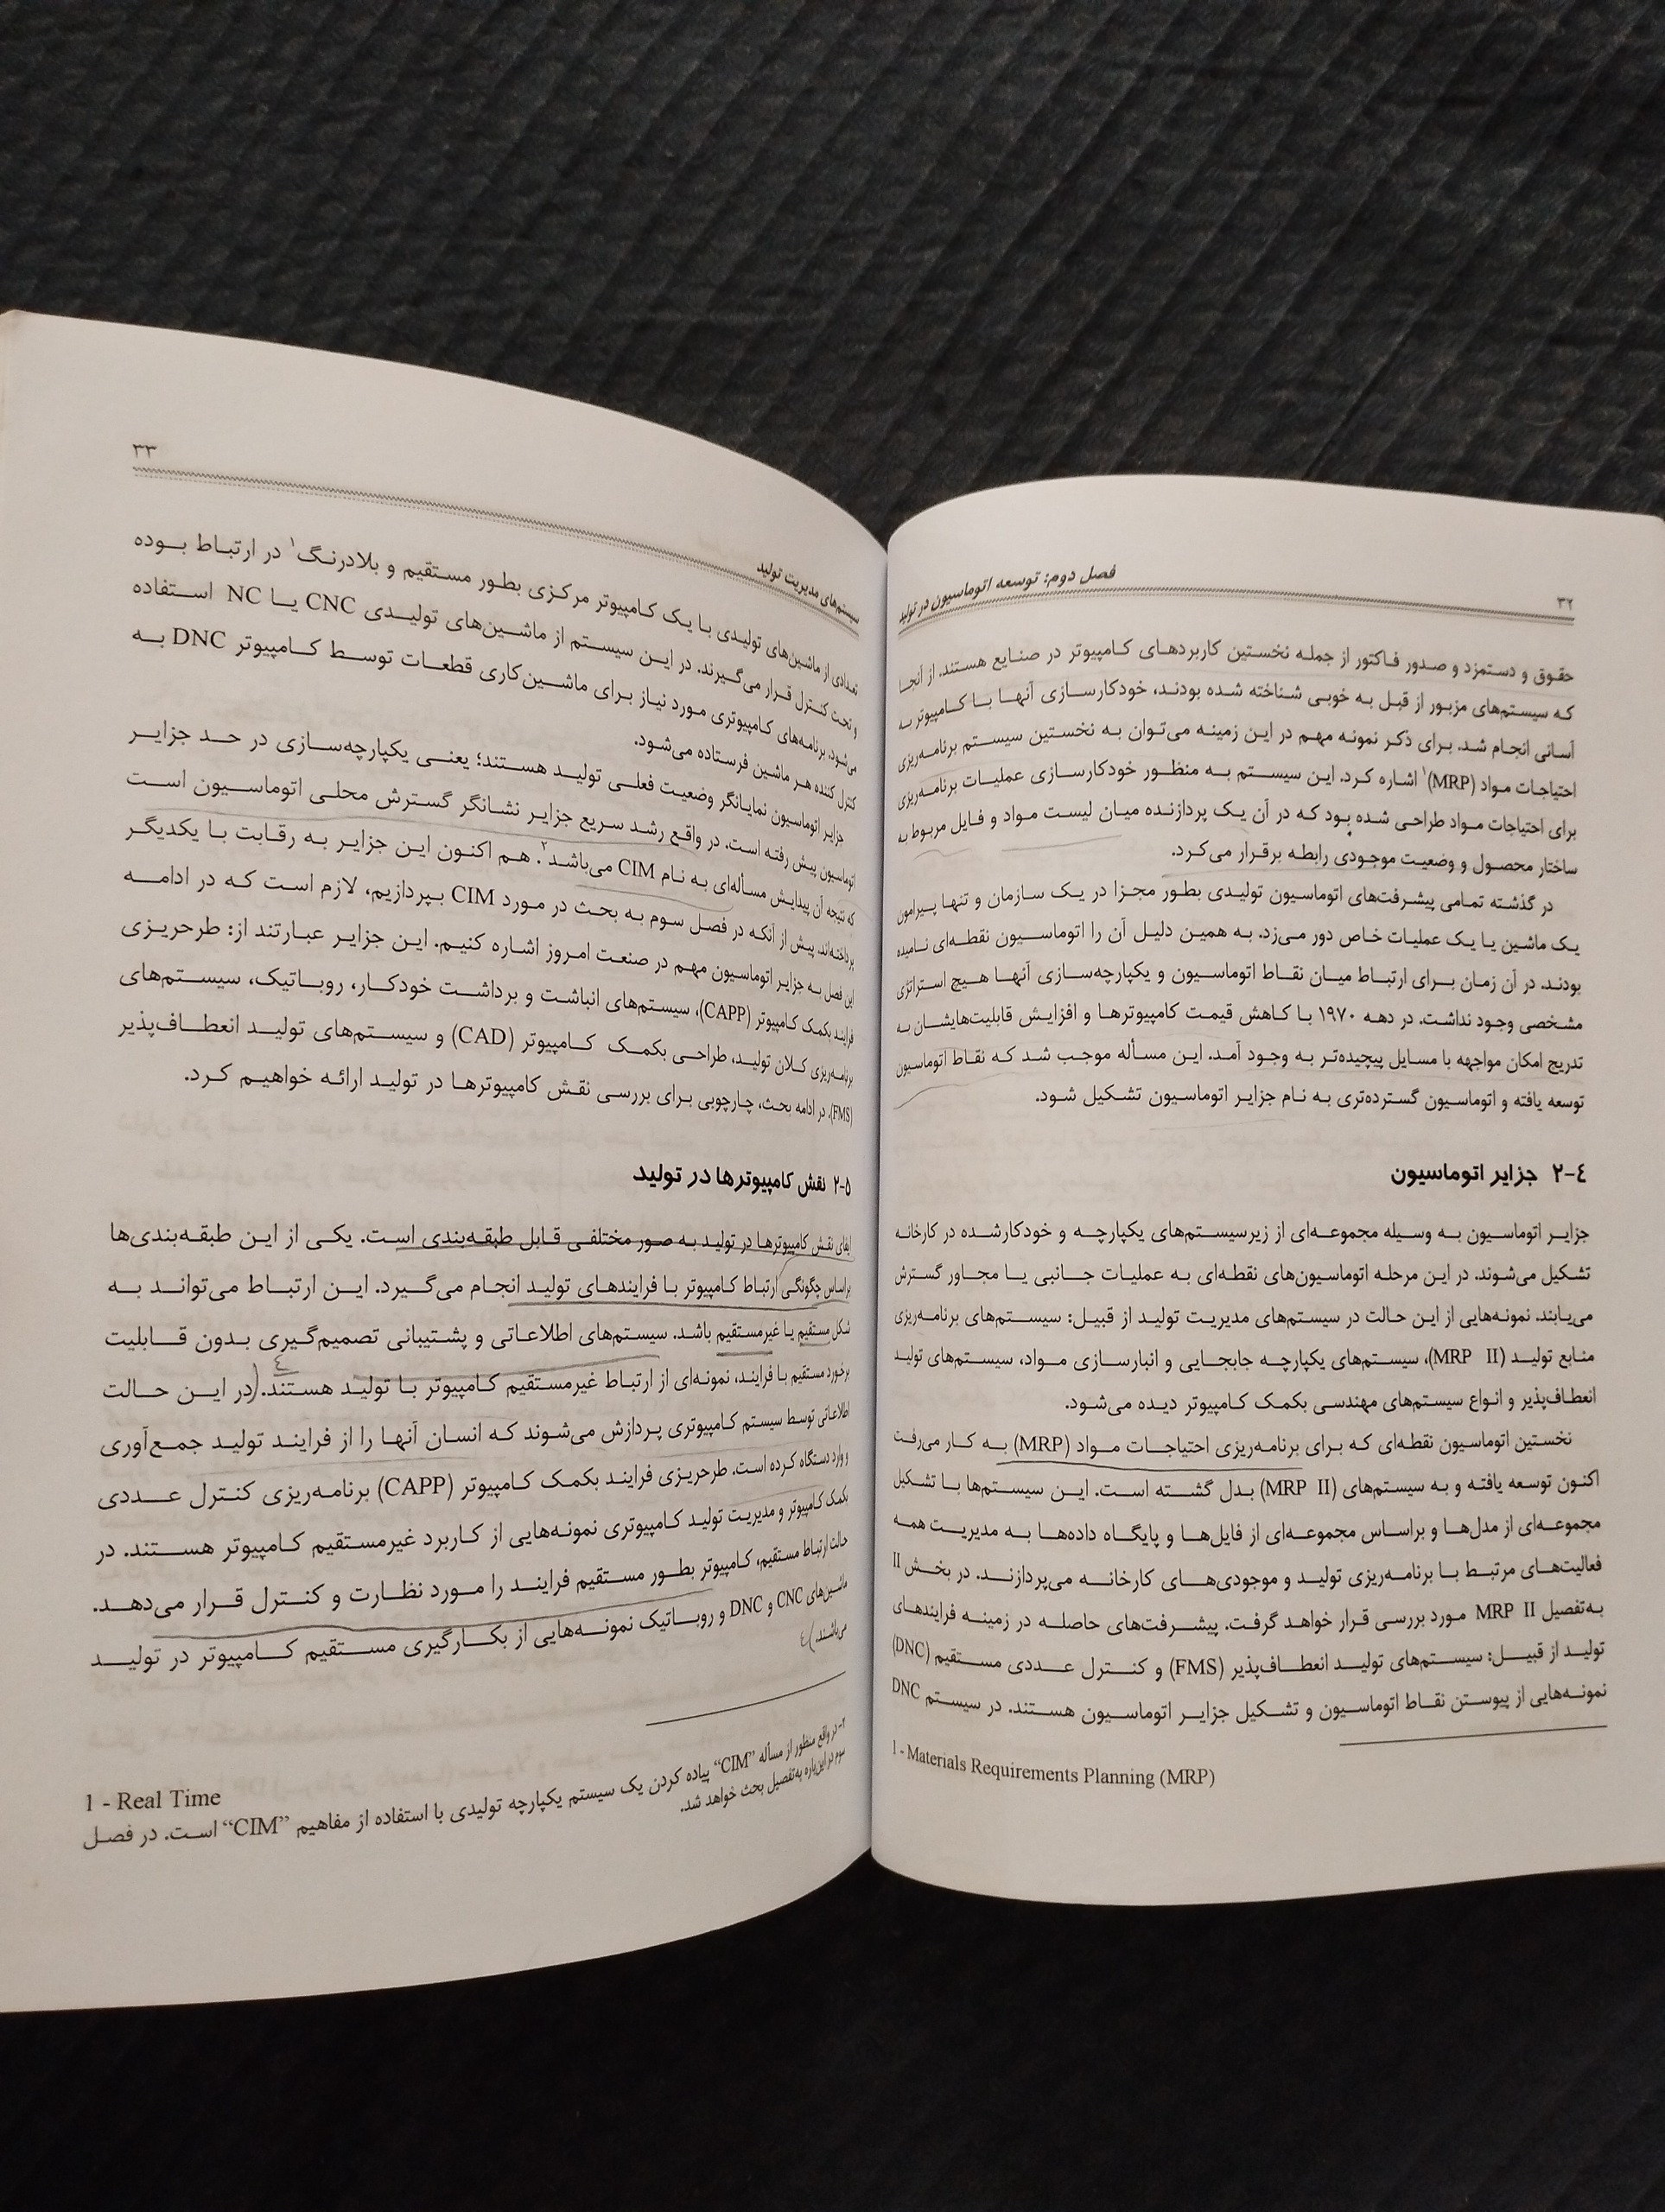 ۳۲
فصل دوم: توسعه اتوماسیون در تولید
حقوق و دستمزد و صدور فاکتور از جمله نخستین کاربردهای کامپیوتر در صنایع هستند. از آنجا
که سیستم‌های مزبور از قبل به خوبی شناخته شده بودند، خودکارسازی آنها با کامپیوتر به
آسانی انجام شد. برای ذکر نمونه مهم در این زمینه می‌توان به نخستین سیستم برنامه‌ریزی
احتیاجات مواد (MRP)۱ اشاره کرد. این سیستم به منظور خودکارسازی عملیات برنامه‌ریزی
برای احتیاجات مواد طراحی شده بود که در آن یک پردازنده میان لیست مواد و فایل مربوط به
ساختار محصول و وضعیت موجودی رابطه برقرار می‌کرد.
در گذشته تمامی پیشرفت‌های اتوماسیون تولیدی بطور مجزا در یک سازمان و تنها پیرامون
یک ماشین یا یک عملیات خاص دور می‌زد. به همین دلیل آن را اتوماسیون نقطه‌ای نامیده
بودند. در آن زمان برای ارتباط میان نقاط اتوماسیون و یکپارچه‌سازی آنها هیچ استراتژی
مشخصی وجود نداشت. در دهه ۱۹۷۰ با کاهش قیمت کامپیوترها و افزایش قابلیت‌هایشان به
تدریج امکان مواجهه با مسایل پیچیده‌تر به وجود آمد. این مسأله موجب شد که نقاط اتوماسیون
توسعه یافته و اتوماسیون گسترده‌تری به نام جزایر اتوماسیون تشکیل شود.
۲-٤ جزایر اتوماسیون
جزایر اتوماسیون به وسیله مجموعه‌ای از زیرسیستم‌های یکپارچه و خودکارشده در کارخانه
تشکیل می‌شوند. در این مرحله اتوماسیون‌های نقطه‌ای به عملیات جانبی یا مجاور گسترش
می‌یابند. نمونه‌هایی از این حالت در سیستم‌های مدیریت تولید از قبیل: سیستم‌های برنامه‌ریزی
منابع تولید (MRP II)، سیستم‌های یکپارچه جابجایی و انبارسازی مواد، سیستم‌های تولید
انعطاف‌پذیر و انواع سیستم‌های مهندسی بکمک کامپیوتر دیده می‌شود.
نخستین اتوماسیون نقطه‌ای که برای برنامه‌ریزی احتیاجات مواد (MRP) به کار می‌رفت
اکنون توسعه یافته و به سیستم‌های (MRP II) بدل گشته است. این سیستم‌ها با تشکیل
مجموعه‌ای از مدل‌ها و براساس مجموعه‌ای از فایل‌ها و پایگاه داده‌ها به مدیریت همه
فعالیت‌های مرتبط با برنامه‌ریزی تولید و موجودی‌های کارخانه می‌پردازند. در بخش II
به‌تفصیل MRP II مورد بررسی قرار خواهد گرفت. پیشرفت‌های حاصله در زمینه فرایندهای
تولید از قبیل: سیستم‌های تولید انعطاف‌پذیر (FMS) و کنترل عددی مستقیم (DNC)
نمونه‌هایی از پیوستن نقاط اتوماسیون و تشکیل جزایر اتوماسیون هستند. در سیستم DNC
1 - Materials Requirements Planning (MRP)
سیستم‌های مدیریت تولید
۳۳
تعدادی از ماشین‌های تولیدی با یک کامپیوتر مرکزی بطور مستقیم و بلادرنگ۱ در ارتباط بوده
و تحت کنترل قرار می‌گیرند. در این سیستم از ماشین‌های تولیدی CNC یا NC استفاده
می‌شود. برنامه‌های کامپیوتری مورد نیاز برای ماشین‌کاری قطعات توسط کامپیوتر DNC به
کنترل کننده هر ماشین فرستاده می‌شود.
جزایر اتوماسیون نمایانگر وضعیت فعلی تولید هستند؛ یعنی یکپارچه‌سازی در حد جزایر
اتوماسیون پیش رفته است. در واقع رشد سریع جزایر نشانگر گسترش محلی اتوماسیون است
که نتیجه آن پیدایش مسأله‌ای به نام CIM می‌باشد۲. هم اکنون این جزایر به رقابت با یکدیگر
پرداخته‌اند. پیش از آنکه در فصل سوم به بحث در مورد CIM بپردازیم، لازم است که در ادامه
این فصل به جزایر اتوماسیون مهم در صنعت امروز اشاره کنیم. این جزایر عبارتند از: طرحریزی
فرایند بکمک کامپیوتر (CAPP)، سیستم‌های انباشت و برداشت خودکار، روباتیک، سیستم‌های
برنامه‌ریزی کلان تولید، طراحی بکمک کامپیوتر (CAD) و سیستم‌های تولید انعطاف‌پذیر
(FMS). در ادامه بحث، چارچوبی برای بررسی نقش کامپیوترها در تولید ارائه خواهیم کرد.
۲-۵ نقش کامپیوترها در تولید
ایفای نقش کامپیوترها در تولید به صور مختلفی قابل طبقه‌بندی است. یکی از این طبقه‌بندی‌ها
براساس چگونگی ارتباط کامپیوتر با فرایندهای تولید انجام می‌گیرد. این ارتباط می‌تواند به
شکل مستقیم یا غیرمستقیم باشد. سیستم‌های اطلاعاتی و پشتیبانی تصمیم‌گیری بدون قابلیت
برخورد مستقیم با فرایند، نمونه‌ای از ارتباط غیرمستقیم کامپیوتر با تولید هستند. (در این حالت
اطلاعاتی توسط سیستم کامپیوتری پردازش می‌شوند که انسان آنها را از فرایند تولید جمع‌آوری
و وارد دستگاه کرده است. طرحریزی فرایند بکمک کامپیوتر (CAPP) برنامه‌ریزی کنترل عددی
بکمک کامپیوتر و مدیریت تولید کامپیوتری نمونه‌هایی از کاربرد غیرمستقیم کامپیوتر هستند. در
حالت ارتباط مستقیم، کامپیوتر بطور مستقیم فرایند را مورد نظارت و کنترل قرار می‌دهد.
ماشین‌های CNC و DNC و روباتیک نمونه‌هایی از بکارگیری مستقیم کامپیوتر در تولید
می‌باشند.) ٤
1 - Real Time
۲- در واقع منظور از مسأله "CIM" پیاده کردن یک سیستم یکپارچه تولیدی با استفاده از مفاهیم "CIM" است. در فصل
سوم در این‌باره به‌تفصیل بحث خواهد شد.